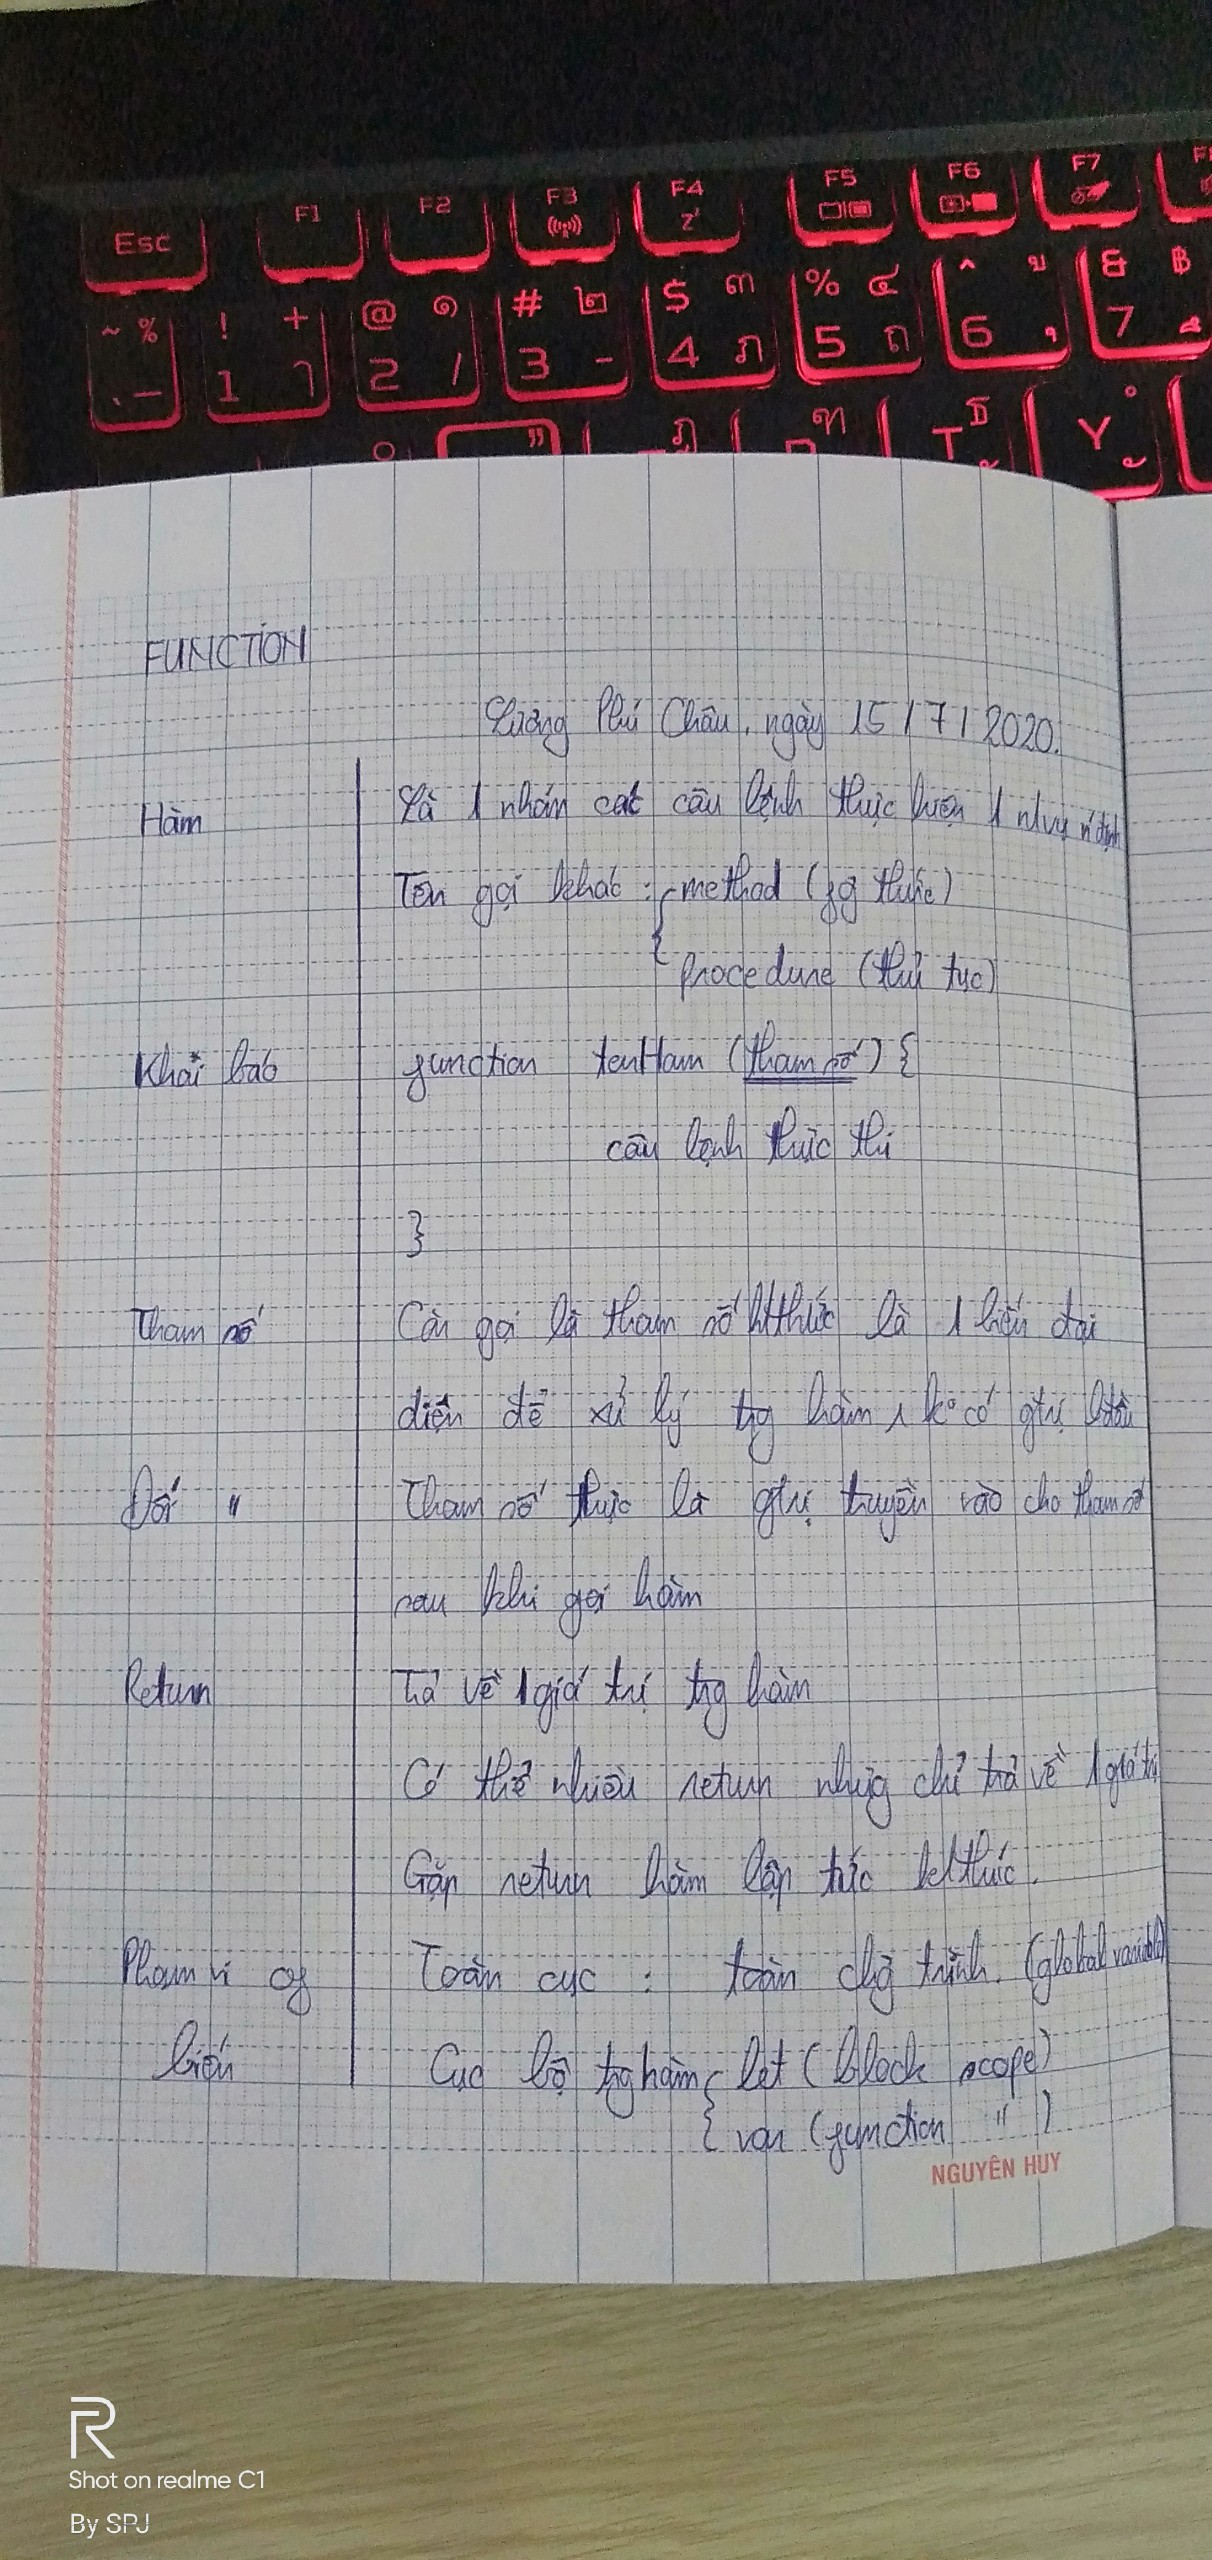 Esc F1 F2 F3 F4 F5 F6 F7
z
~ % ! + @ ๑ # ๒ $ ๓ % ๔ ^ & ฿
- 1 ๅ 2 / 3 - 4 ภ 5 ถ 6 ุ 7 ึ
T ธ Y ํ
FUNCTION
Lương Phú Châu, ngày 15/7/2020.
Hàm Là 1 nhóm các câu lệnh thực hiện 1 nhvụ n'định
Tên gọi khác: { method (fg thức)
procedure (thủ tục)
Khai báo function tenHam (tham số) {
câu lệnh thực thi
}
Tham số Còn gọi là tham số hthức là 1 biến đại
diện để xử lý trg hàm, k° có gtrị bđầu
Đối " Tham số thực là gtrị truyền vào cho tham số
sau khi gọi hàm
Return Trả về 1 giá trị trg hàm
Có thể nhiều return nhưg chỉ trả về 1 giá trị
Gặp return hàm lập tức kết thúc.
Phạm vi of Toàn cục: toàn chg trình. (global variable)
biến Cục bộ trg hàm { let (block scope)
var (function " )
NGUYÊN HUY
R
Shot on realme C1
By SPJ